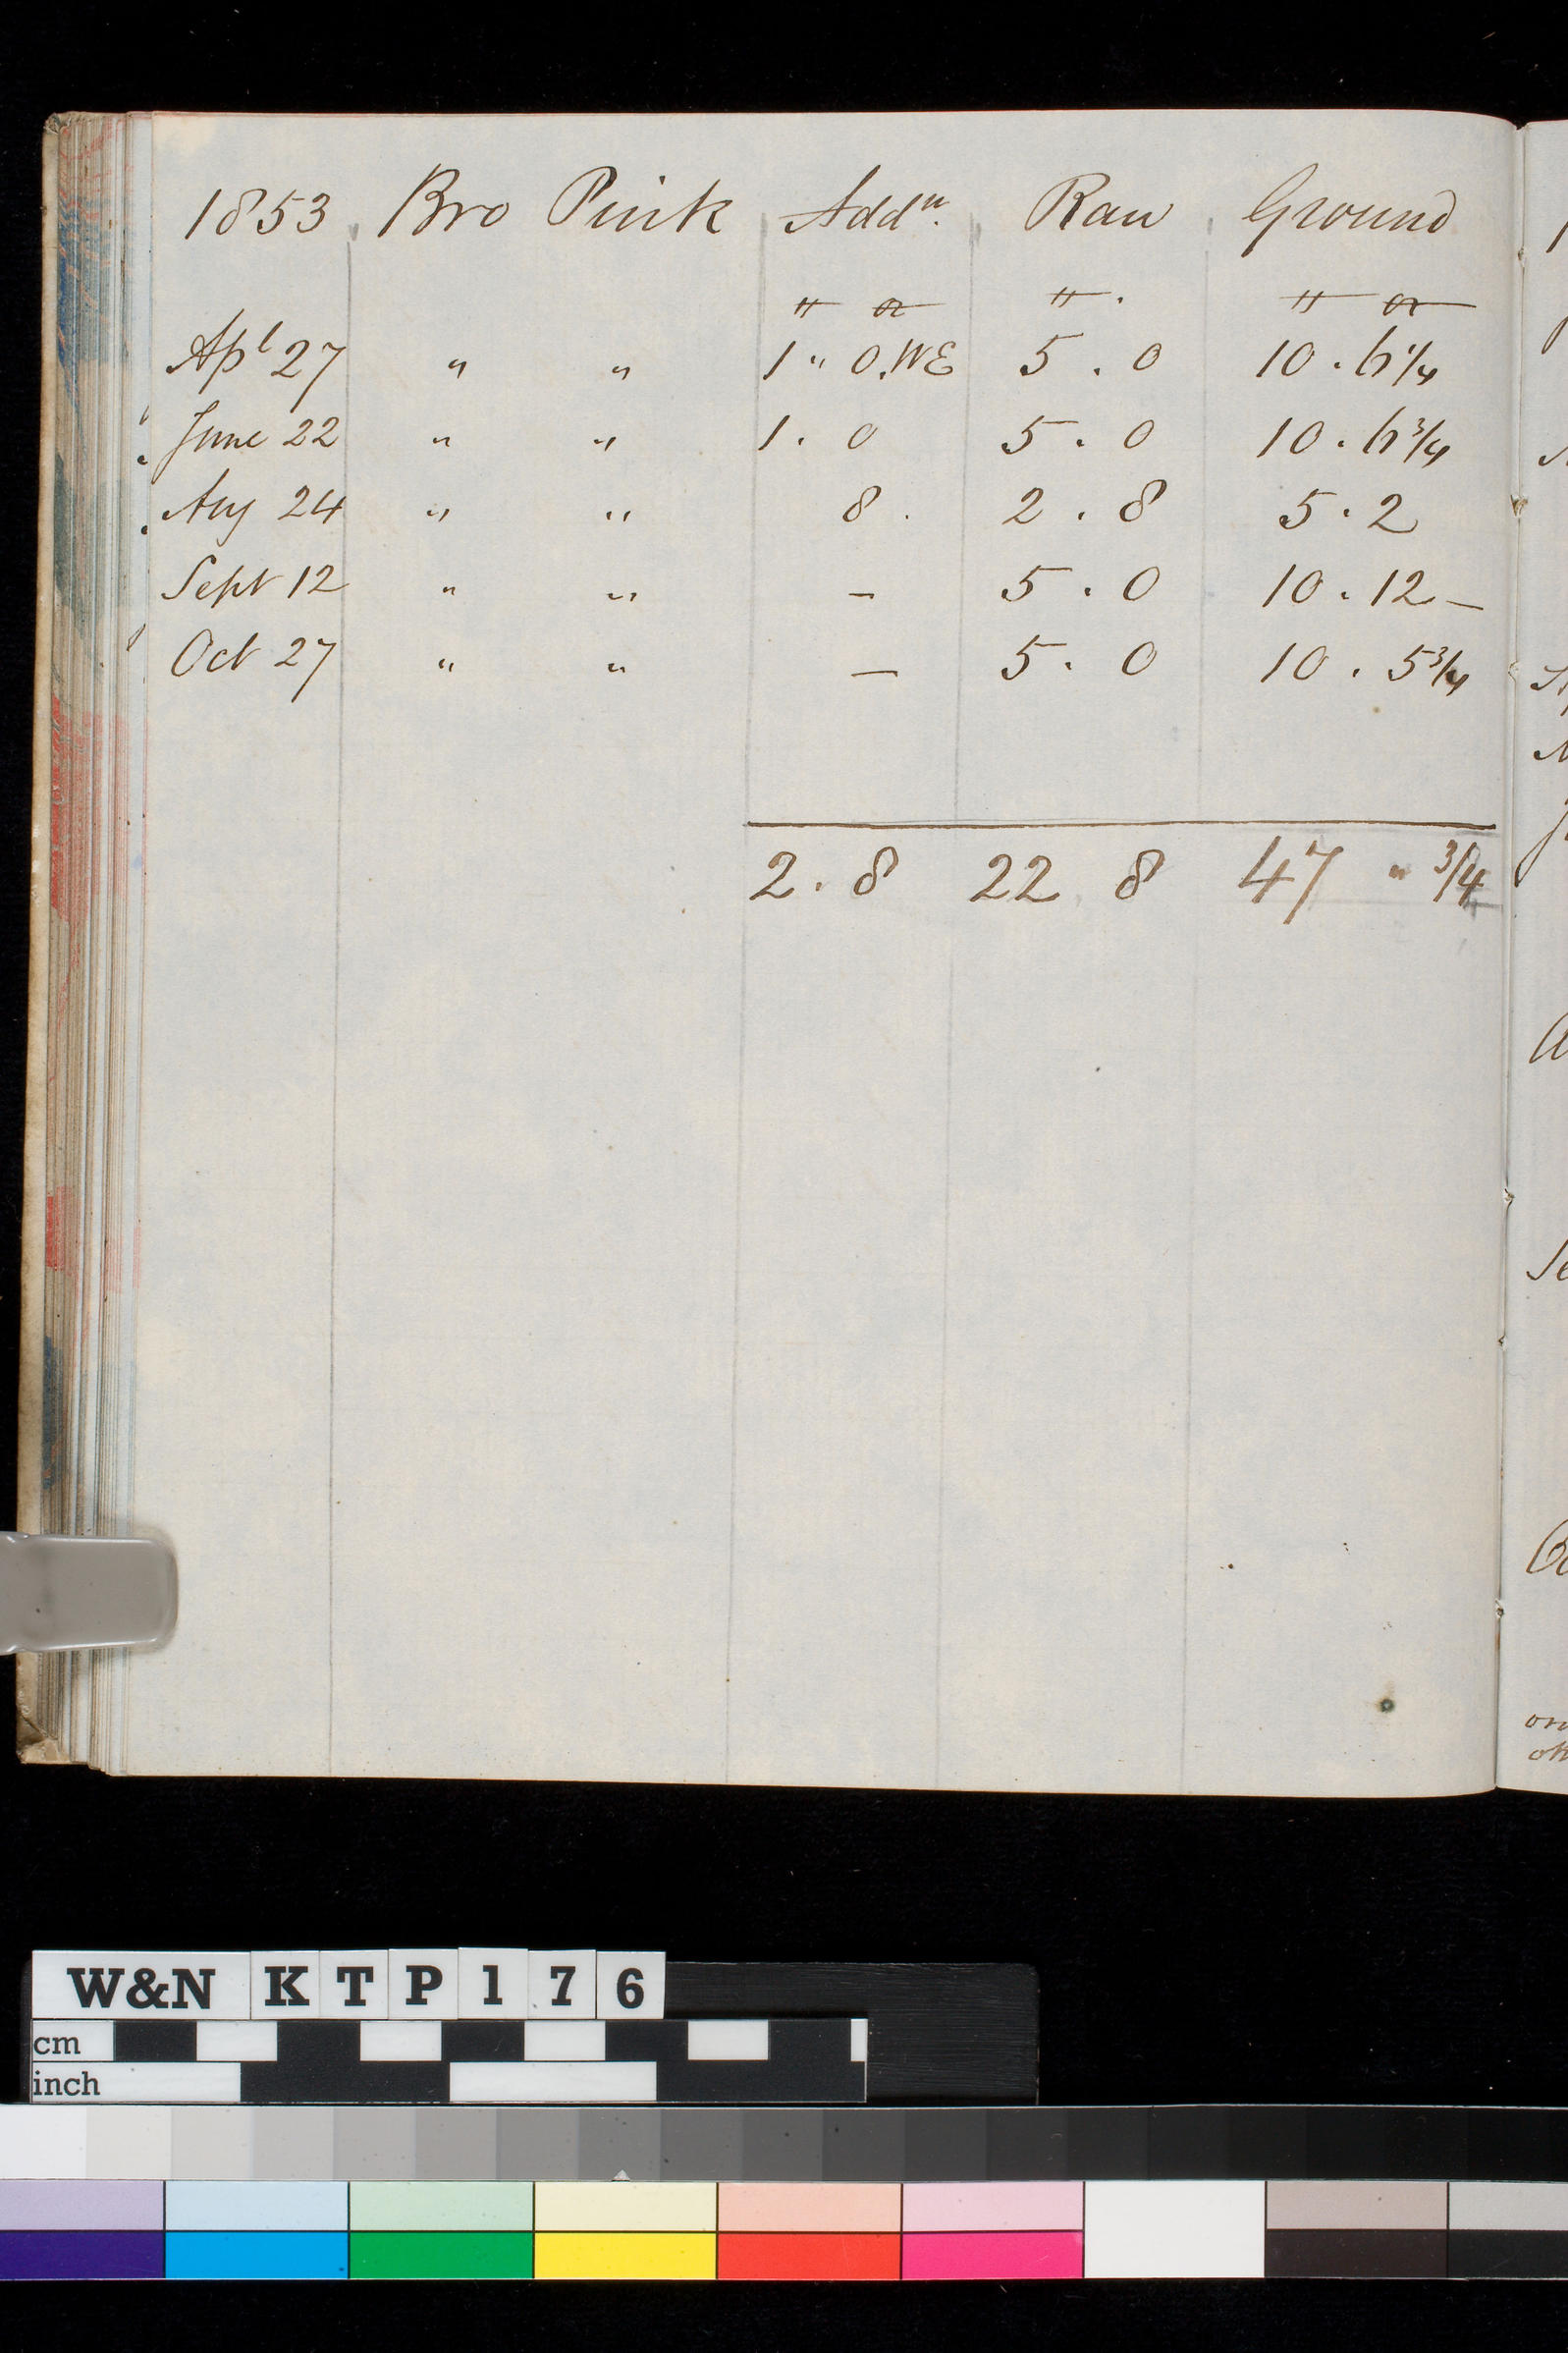 1853 Bro Pink Add<sup>n</sup>. Raw Ground
℔ oz ℔ . ℔ oz
Ap<sup>l</sup> 27 " " 1 " 0.WE 5 . 0 10 . 6 1/4
June 22 " " 1 . 0 5 . 0 10 . 6 3/4
Aug 24 " " 8 . 2 . 8 5 . 2
Sept 12 " " – 5 . 0 10 . 12 –
Oct 27 " " – 5 . 0 10 . 5 3/4
2 . 8 22 8 47 " 3/4
W&N KTP176
cm
inch